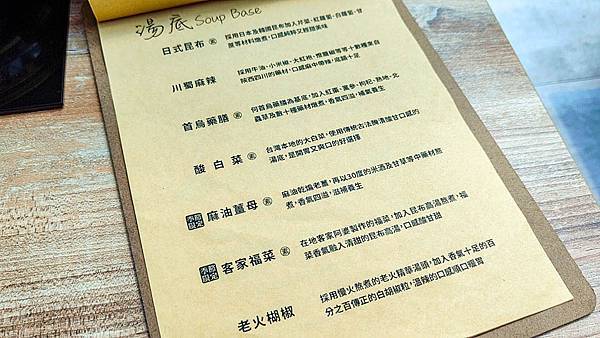 湯底 Soup Base
日式昆布 素
採用日本洛韓國昆布加入芹菜、紅蘿蔔、白蘿蔔、甘
蔗等材料燉煮，口感純粹又輕甜美味
川蜀麻辣
採用牛油、小米椒、大紅袍、燈籠椒等等十數種來自
陝西四川的藥材，口感麻中帶辣，底韻十足
首烏藥膳 素
何首烏藥膳為基底，加入紅棗、黨參、枸杞、熟地、北
蟲草及數十種藥材燉煮，香氣四溢，補氣養生
酸白菜 素
台灣本地的大白菜，使用傳統古法醃漬酸甘口感的
湯底，是開胃又爽口的好選擇
季節限定 麻油薑母 素
麻油乾煸老薑，再以30度的米酒及甘草等中藥材熬
煮，香氣四溢，滋補養生
季節限定 客家福菜 素
在地客家阿婆製作的福菜，加入昆布高湯熬煮，福
菜香氣融入清甜的昆布高湯，口感酸甘甜
老火椒椒
採用慢火熬煮的老火精華湯頭，加入香氣十足的百
分之百傳正的白胡椒粒，溫辣的口感順口暖胃